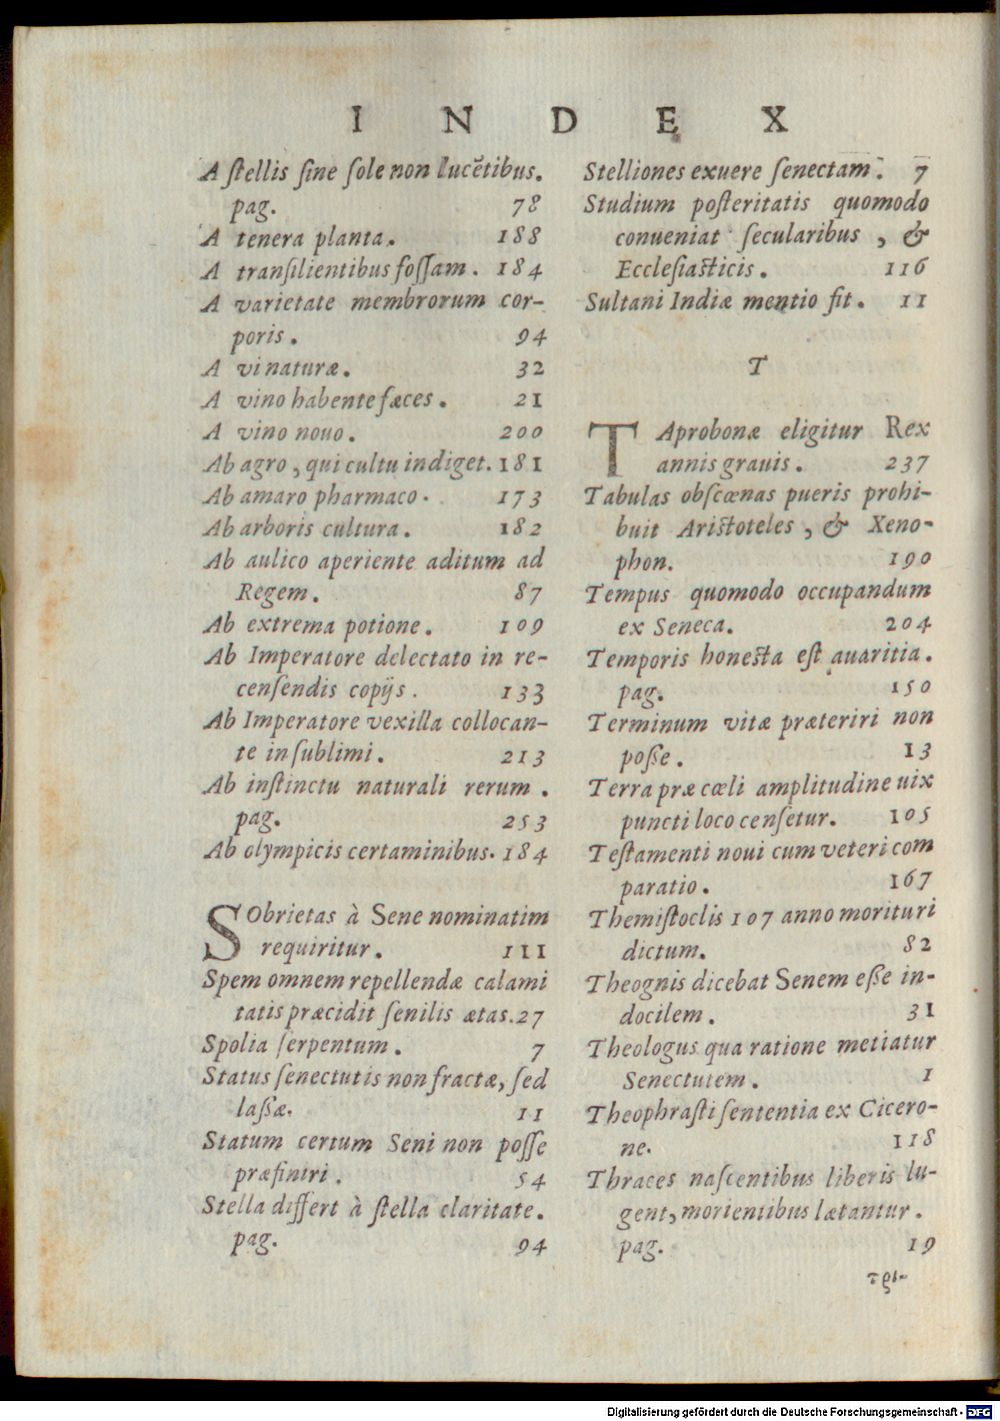 INDEX
A stellis sine sole non lucẽtibus.
pag. 78
A tenera planta. 188
A transilientibus fossam. 184
A varietate membrorum cor-
poris. 94
A vi naturæ. 32
A vino habente fæces. 21
A vino nouo. 200
Ab agro, qui cultu indiget. 181
Ab amaro pharmaco. 173
Ab arboris cultura. 182
Ab aulico aperiente aditum ad
Regem. 87
Ab extrema potione. 109
Ab Imperatore delectato in re-
censendis copijs. 133
Ab Imperatore vexilla collocan-
te in sublimi. 213
Ab instinctu naturali rerum.
pag. 253
Ab olympicis certaminibus. 184
SObrietas à Sene nominatim
requiritur. 111
Spem omnem repellendæ calami
tatis præcidit senilis ætas. 27
Spolia serpentum. 7
Status senectutis non fractæ, sed
lassæ. 11
Statum certum Seni non posse
præfiniri. 54
Stella differt à stella claritate.
pag. 94
Stelliones exuere senectam. 7
Studium posteritatis quomodo
conueniat secularibus, &
Ecclesiasticis. 116
Sultani Indiæ mentio fit. 11
T
TAprobonæ eligitur Rex
annis grauis. 237
Tabulas obscœnas pueris prohi-
buit Aristoteles, & Xeno-
phon. 190
Tempus quomodo occupandum
ex Seneca. 204
Temporis honesta est auaritia.
pag. 150
Terminum vitæ præteriri non
posse. 13
Terra præ cœli amplitudine uix
puncti loco censetur. 105
Testamenti noui cum veteri com
paratio. 167
Themistoclis 107 anno morituri
dictum. 82
Theognis dicebat Senem esse in-
docilem. 31
Theologus qua ratione metiatur
Senectutem. 1
Theophrasti sententia ex Cicero-
ne. 118
Thraces nascentibus liberis lu-
gent, morientibus lætantur.
pag. 19
Digitalisierung gefördert durch die Deutsche Forschungsgemeinschaft - DFG